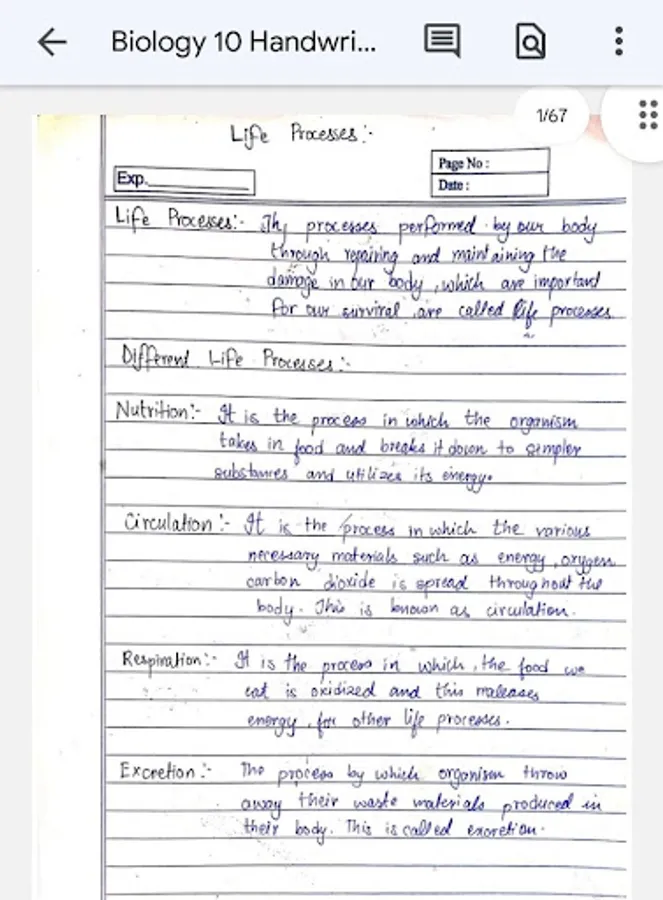 Biology 10 Handwri...
1/67
Life Processes:-
Exp.
Page No :
Date :
Life Processes:- The processes performed by our body
through repairing and maintaining the
damage in our body, which are important
for our survival are called life processes
Different Life Processes:-
Nutrition:- It is the process in which the organism
takes in food and breaks it down to simpler
substances and utilizes its energy.
Circulation:- It is the process in which the various
necessary materials such as energy, oxygen
carbon dioxide is spread throughout the
body. This is known as circulation.
Respiration:- It is the process in which, the food we
eat is oxidized and this releases
energy, for other life processes.
Excretion:- The process by which organism throw
away their waste materials produced in
their body. This is called excretion.